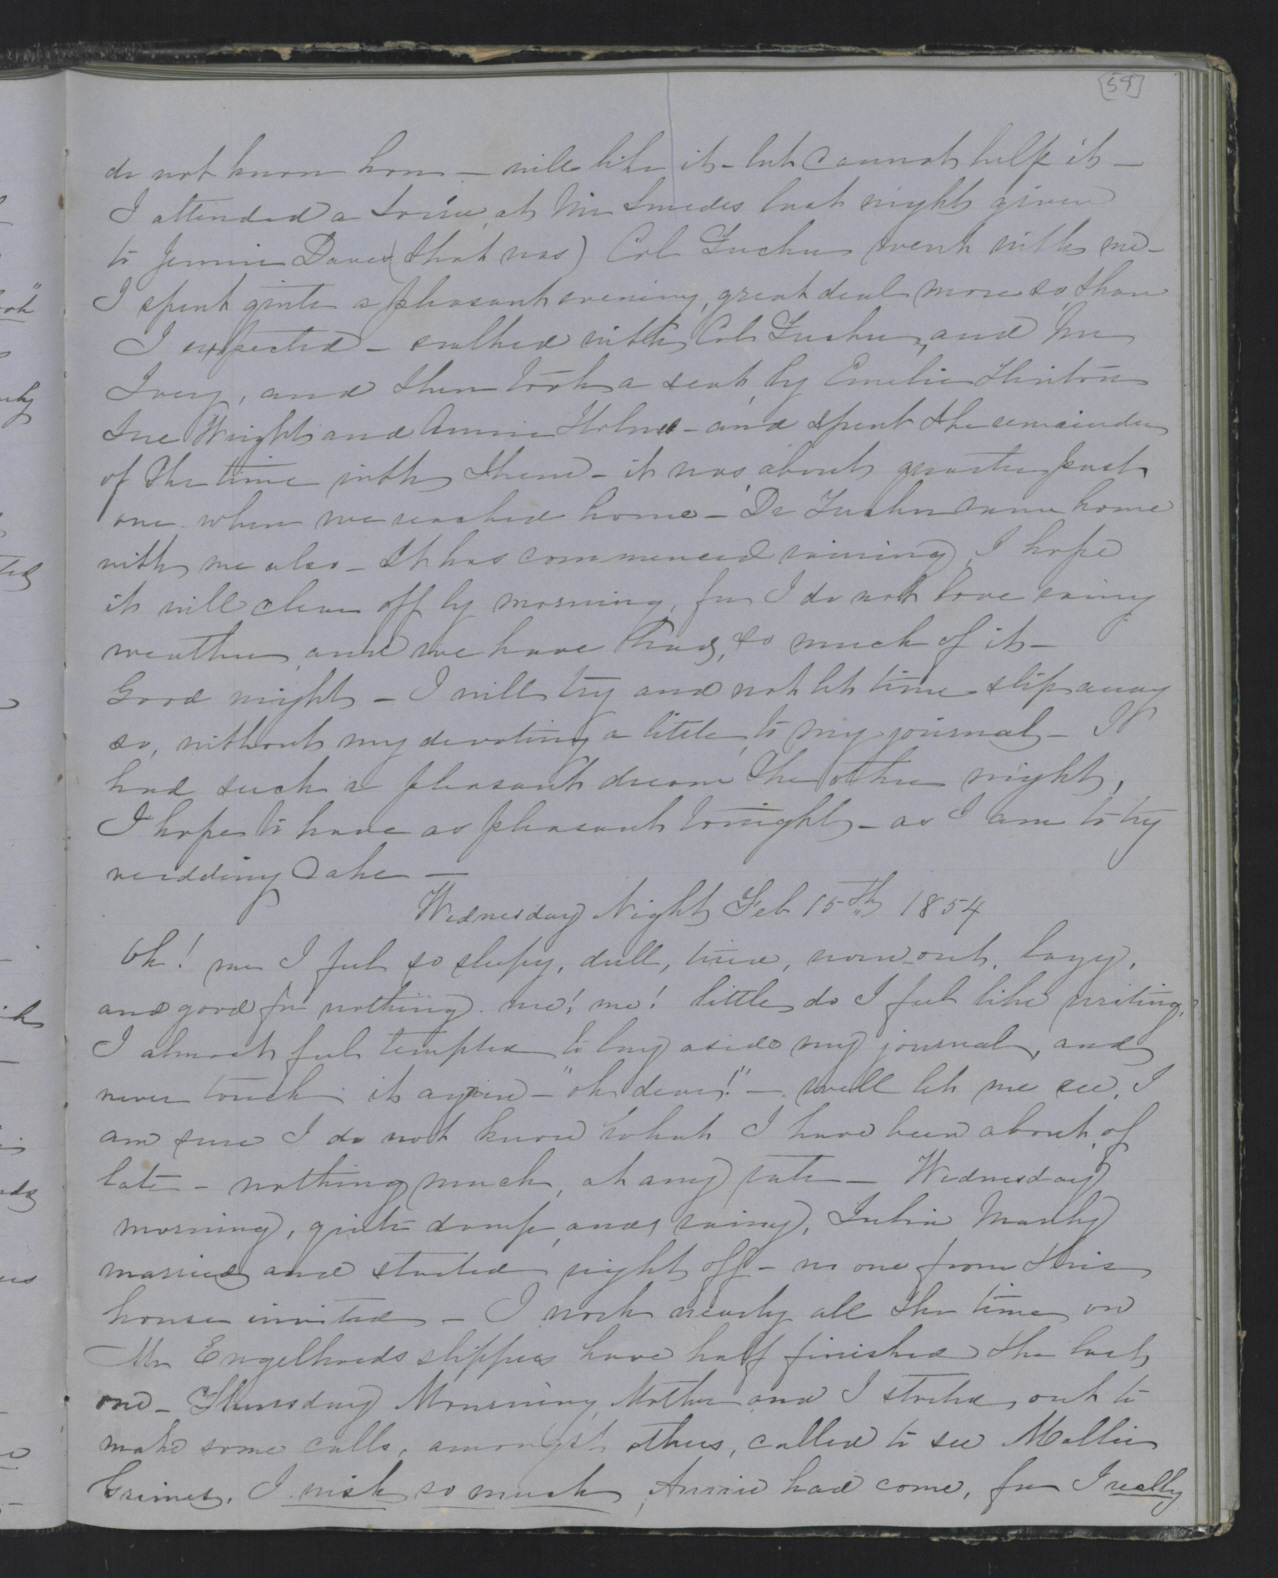 [59]
do not know how - will like it - but cannot help it -
I attended a Soiree, at Mr Smedes last night given
to Jennie Daves (that was) Col Tucker went with me -
I spent quite a pleasant evening, great deal more so than
I expected - walked with Col Tucker, and Mr
Ivey, and then took a seat by Emilie Hinton
Sue Wright and Annie Holmes - and spent the remainder
of the time with them - it was about quarter past
one when we reached home - Dr Tucker came home
with me also - It has commenced raining, I hope
it will clear off by morning, for I do not love rainy
weather, and we have had, so much of it -
Good night - I will try and not let time slip away
so, without my devoting a little to my journal - I
had such a pleasant dream the other night,
I hope to have as pleasant tonight - as I am to try
wedding cake -
Wednesday Night Feb 15th 1854
Oh! me I feel so sleepy, dull, tired, worn out, lazy,
and good for nothing. me! me! little do I feel like writing,
I almost feel tempted to lay aside my journal, and
never touch it again - "oh dear!" - well let me see, I
am sure I do not know what I have been about of
late - nothing much, at any rate - Wednesday
morning, quite damp, and rainy, Julia Manly
married and started right off - no one from this
house invited - I work nearly all the time on
Mr Engelhards slippers have half finished the last
one - Thursday Mourning Mother and I started out to
make some calls, amongst others, called to see Mollie
Grimes. I wish so much Annie had come, for I really